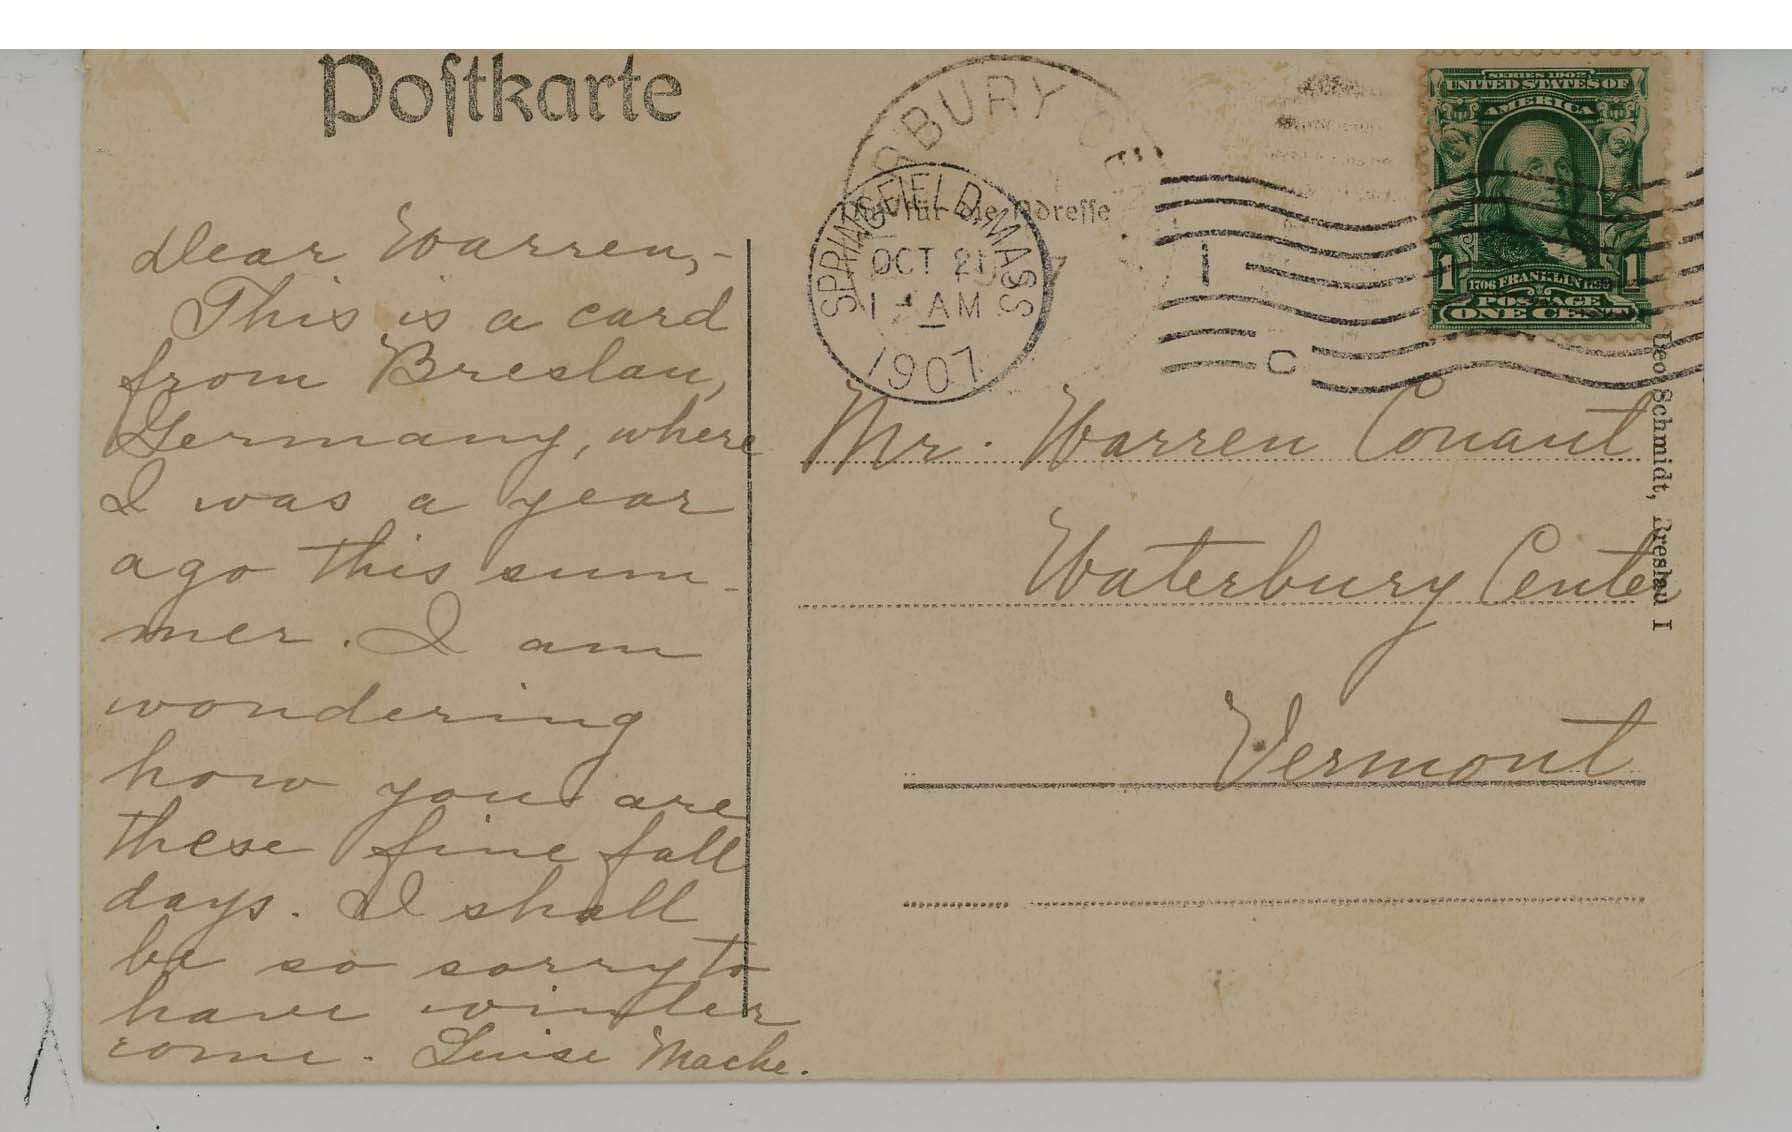 Postkarte
Nur für die Adresse
WATERBURY CE
SPRINGFIELD, MASS
OCT 21
1 - AM
1907
1
C
SERIES 1902
UNITED STATES OF
AMERICA
1 1706 FRANKLIN 1790 1
POSTAGE
ONE CENT
Leo Schmidt, Breslau I
Dear Warren,-
This is a card
from Breslau,
Germany, where
I was a year
ago this sum-
mer. I am
wondering
how you are
these fine fall
days. I shall
be so sorry to
have winter
come. Luise Mache.
Mr. Warren Conant
Waterbury Center
Vermont